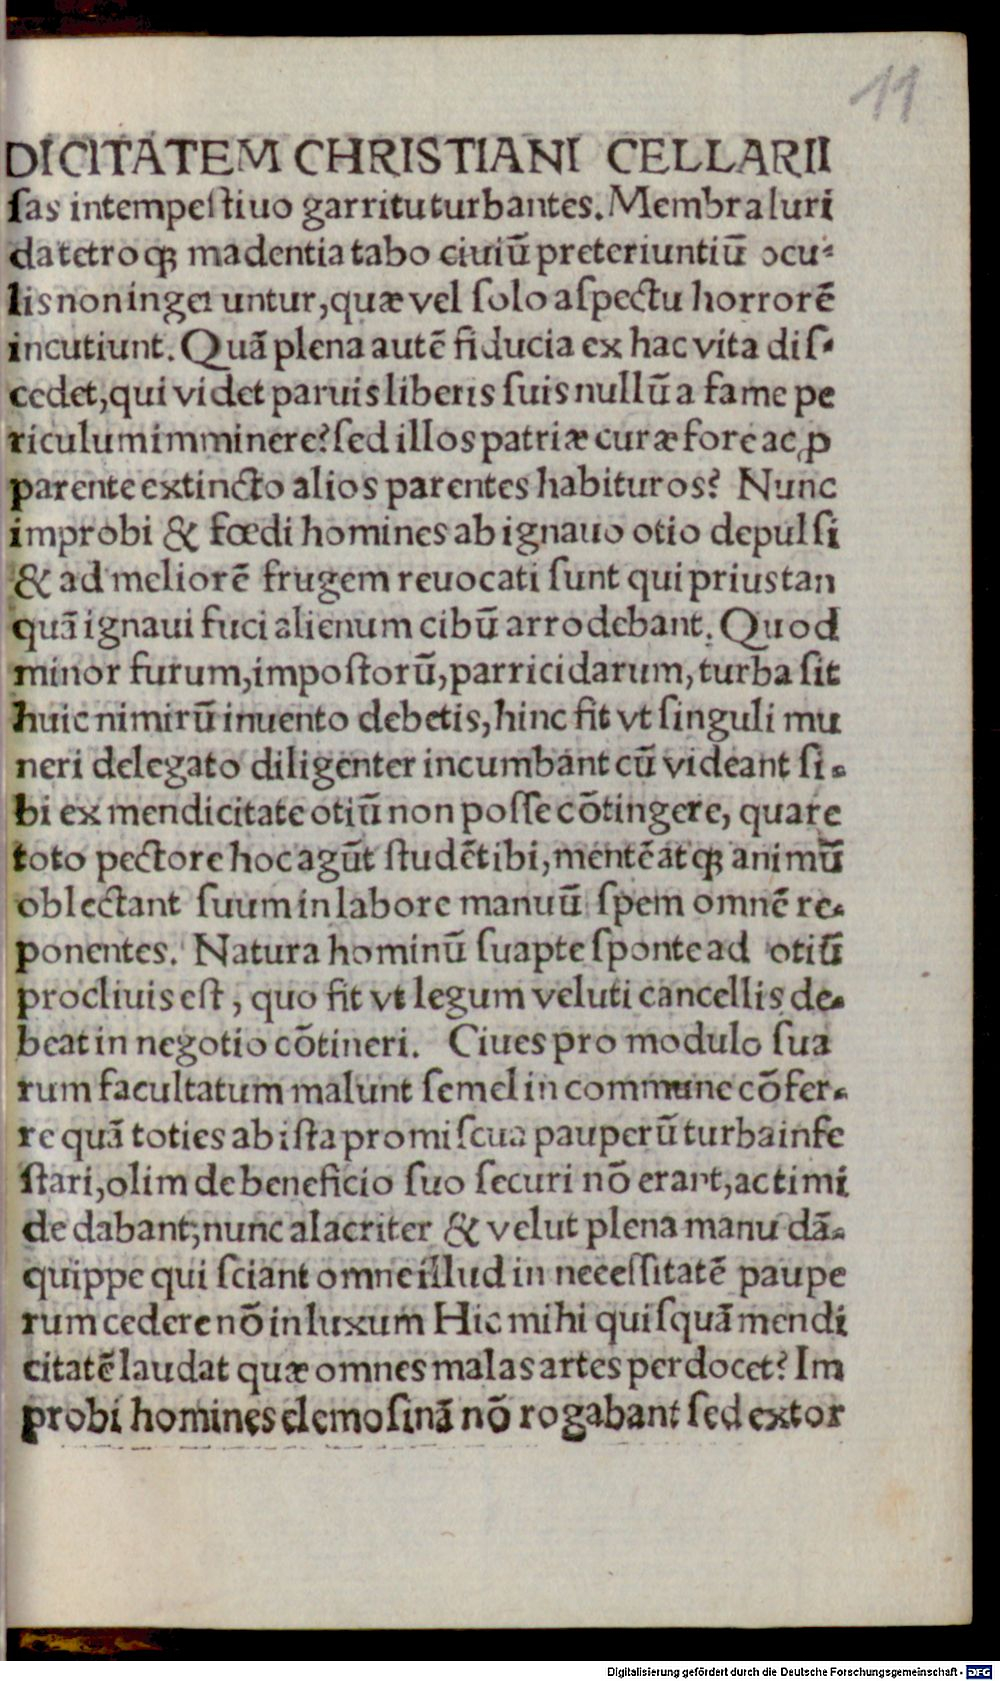 11
DICITATEM CHRISTIANI CELLARII
ſas intempeſtiuo garritu turbantes. Membra luri
da tetroqꝫ madentia tabo ciuiū preteriuntiū ocu-
lis non ingeruntur, quæ vel ſolo aſpectu horrorē
incutiunt. Quā plena autē fiducia ex hac vita diſ-
cedet, qui videt paruis liberis ſuis nullū a fame pe
riculum imminere? ſed illos patriæ curæ fore ac ꝓ
parente extincto alios parentes habituros? Nunc
improbi & fœdi homines ab ignauo otio depulſi
& ad meliorē frugem reuocati ſunt qui prius tan
quā ignaui fuci alienum cibū arrodebant. Quod
minor furum, impoſtorū, parricidarum, turba sit
huic nimirū inuento debetis, hinc fit vt ſinguli mu
neri delegato diligenter incumbant cū videant ſi-
bi ex mendicitate otiū non poſſe cōtingere, quare
toto pectore hoc agūt ſtudēt ibi, mentē atqꝫ animū
oblectant ſuum in labore manuū ſpem omnē re-
ponentes. Natura hominū ſuapte ſponte ad otiū
procliuis eſt, quo fit vt legum veluti cancellis de-
beat in negotio cōtineri. Ciues pro modulo ſua
rum facultatum malunt ſemel in commune cōfer-
re quā toties ab iſta promiſcua pauperū turba infe
ſtari, olim de beneficio ſuo ſecuri nō erant, ac timi
de dabant; nunc alacriter & velut plena manu dā-
quippe qui ſciant omne illud in neceſſitatē paupe
rum cedere nō in luxum Hic mihi quiſquā mendi
citatē laudat quæ omnes malas artes perdocet? Im
probi homines elemoſinā nō rogabant ſed extor
Digitalisierung gefördert durch die Deutsche Forschungsgemeinschaft - DFG